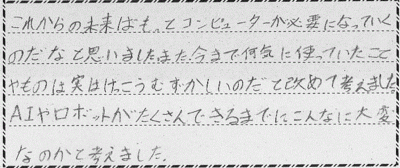 これからの未来はもっとコンピューターが必要になっていく
のだなと思いました。また、今まで何気に使っていたこと
やものは実はけっこうむずかしいのだと改めて考えました
AIやロボットがたくさんできるまでにこんなに大変
なのかと考えました。